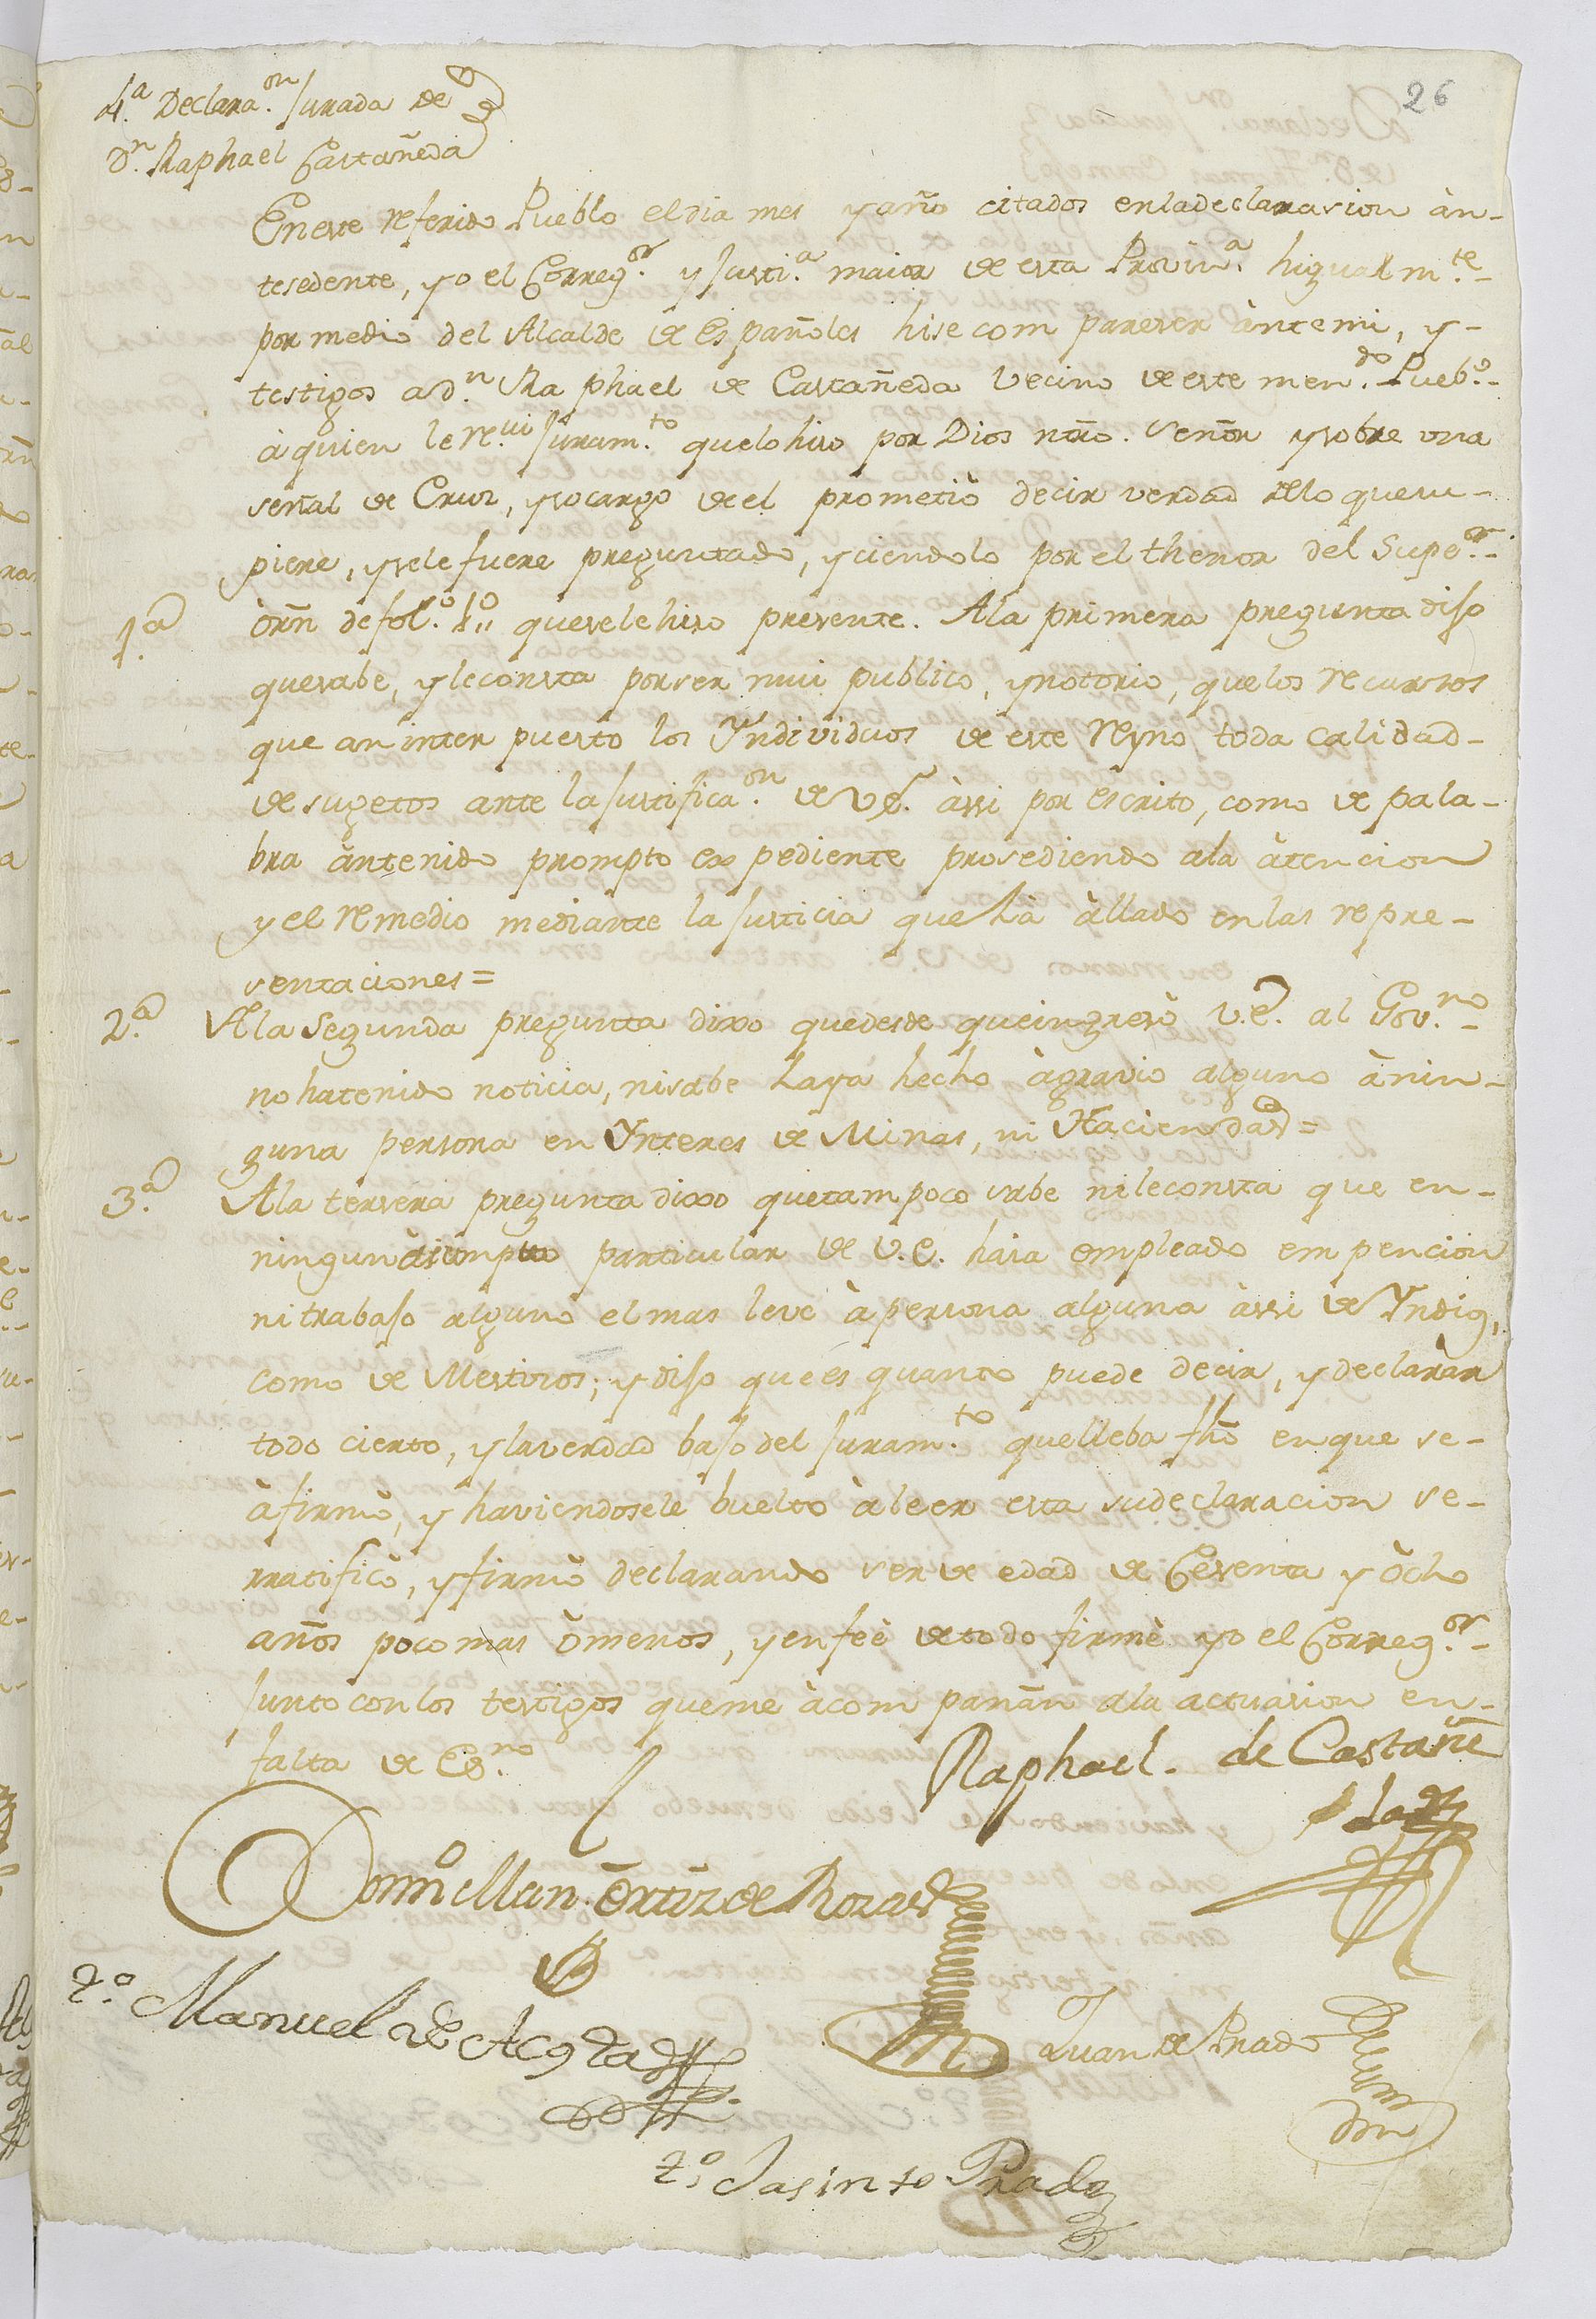 26
4.ª Declara.on Jurada de
Dn. Raphael Castañeda
En este referido Pueblo el dia mes y año citados en la declarasion àn-
tesedente, yo el Correg.or y Justi.ª maior de esta Provin.ª higualm.te-
por medio del Alcalde de Españoles hise com pareser àntemi, y-
testigos a dn. Raphael de Castañeda Vecino de este men.do Pueb.o-
à quien le re.ui Juram.to que lo hiso por Dios ntro. señor y sobre una
señal de Cruz, y so cargo de el prometiò decir verdad de lo que su-
piere, y se le fuere preguntado, y ciendolo por el thenor del Supe.or-
1.ª òrn de fol.o 1.o que se le hiso presente. A la primera pregunta dijo
que sabe, y le consta por ser mui publico, y notorio, que los recursos
que an inter puesto los Yndividuos de este reyno toda calidad-
de sugetos ante la Justifica.on de V.E. àssi por escrito, como de pala-
bra àn tenido prompto expediente prosediendo a la àtencion
y el remedio mediante la Justicia que hà àllado en las repre-
sentaciones=
2.ª A la segunda pregunta dixo que desde que ingresò V.E. al Gov.no-
no ha tenido noticia, ni sabe haya hecho àgravio alguno à nin-
guna persona en Ynteres de Minas, ni Haciendas=
3.ª A la tersera pregunta dixo que tampoco sabe ni le consta que en-
ningun àsumpto particular de V.E. haia empleado em pencion
ni trabajo alguno el mas leve à persona alguna àssi de Yndios,
como de Mestizos; y dijo que es quanto puede decir, y declaràr
todo cierto, y la verdad bajo del Juram.to que lleba fho en que se-
àfirmò, y haviendosele buelto à leer esta su declaracion se-
rratificò, y firmò declarando ser de edad de Cesenta y òcho
años poco mas òmenos, y en feè de todo firmè yo el Correg.or-
Junto con los testigos que me àcom pañan a la actuasion en-
falta de Es.no
Raphael. de Castañe
da
Domo Man. Ortiz de Rozas
to. Manuel de Acosta
Juan de Prado
to. Jasinto Prado